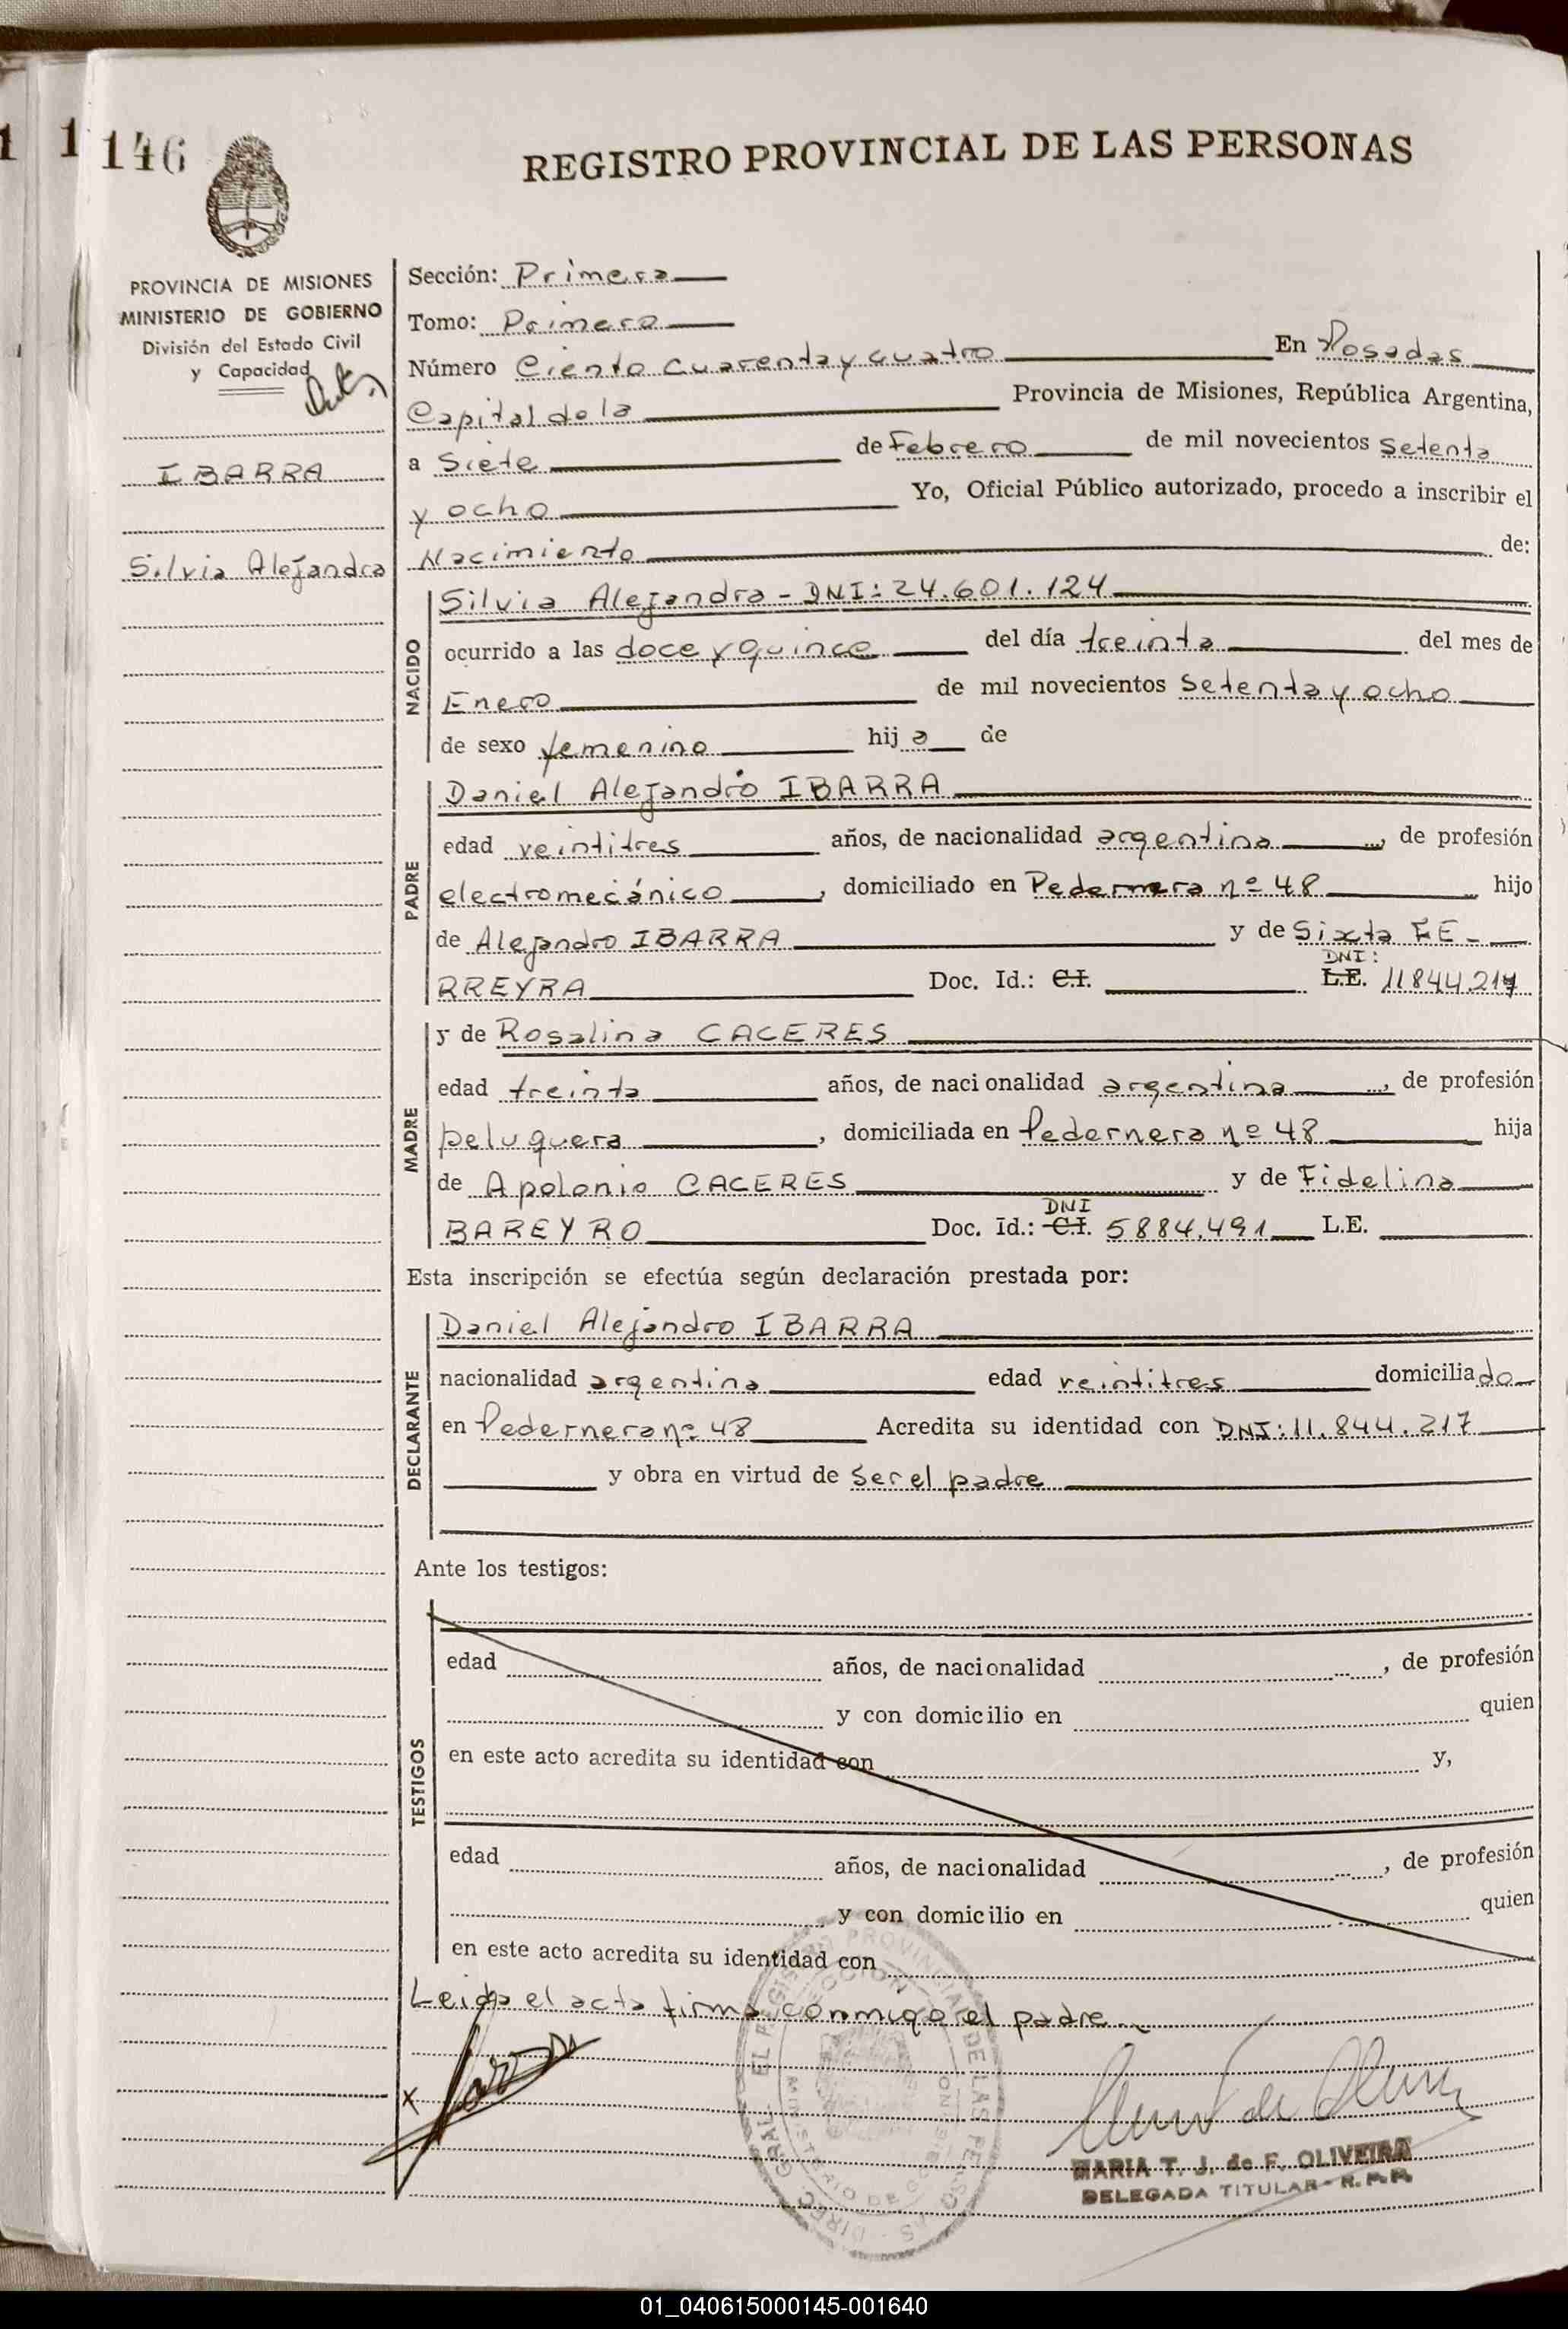 146
REGISTRO PROVINCIAL DE LAS PERSONAS
PROVINCIA DE MISIONES
MINISTERIO DE GOBIERNO
División del Estado Civil
y Capacidad
IBARRA
Silvia Alejandra
Sección: Primera
Tomo: Primero
Número Ciento cuarenta y cuatro En Posadas
Capital de la Provincia de Misiones, República Argentina,
a Siete de Febrero de mil novecientos Setenta
y ocho Yo, Oficial Público autorizado, procedo a inscribir el
Nacimiento de:
NACIDO
Silvia Alejandra - DNI: 24.601.124
ocurrido a las doce y quince del día treinta del mes de
Enero de mil novecientos Setenta y ocho
de sexo femenino hija de
PADRE
Daniel Alejandro IBARRA
edad veintitres años, de nacionalidad argentina, de profesión
electromecánico, domiciliado en Pedernera nº 48 hijo
de Alejandro IBARRA y de Sixta FE-
DNI:
RREYRA Doc. Id.: C.I. L.E. 11844.217
MADRE
y de Rosalina CACERES
edad treinta años, de nacionalidad argentina, de profesión
peluquera, domiciliada en Pedernera nº 48 hija
de Apolonio CACERES y de Fidelina
DNI
BAREYRO Doc. Id.: C.I. 5884.491 L.E.
Esta inscripción se efectúa según declaración prestada por:
DECLARANTE
Daniel Alejandro IBARRA
nacionalidad argentina edad veintitres domiciliado
en Pedernera nº 48 Acredita su identidad con DNI: 11.844.217
y obra en virtud de Ser el padre
Ante los testigos:
TESTIGOS
edad años, de nacionalidad , de profesión
y con domicilio en quien
en este acto acredita su identidad con y,
edad años, de nacionalidad , de profesión
y con domicilio en quien
en este acto acredita su identidad con
Leida el acta firma conmigo el padre
MARIA T. J. de F. OLIVEIRA
DELEGADA TITULAR - R. P. P.
01_040615000145-001640